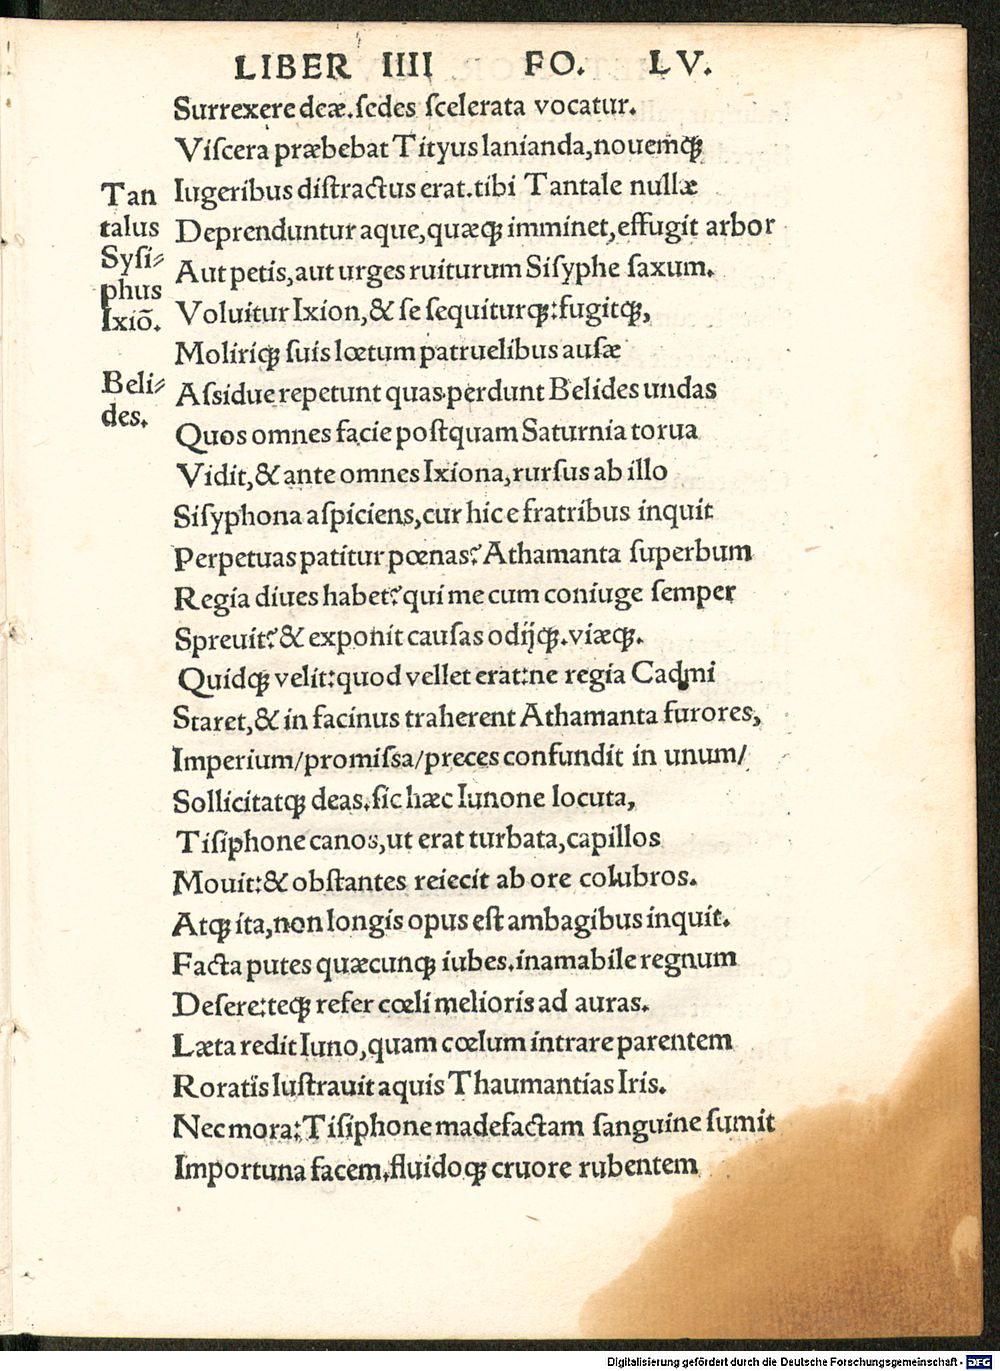 LIBER IIII FO. LV.
Surrexere deæ. ſedes ſcelerata vocatur.
Viſcera præbebat Tityus lanianda, nouemqꝫ
Iugeribus diſtractus erat. tibi Tantale nullæ
Deprenduntur aque, quæqꝫ imminet, effugit arbor
Aut petis, aut urges ruiturum Siſyphe ſaxum.
Voluitur Ixion, & ſe ſequiturqꝫ: fugitqꝫ,
Moliriqꝫ ſuis lœtum patruelibus auſæ
Aſſidue repetunt quas perdunt Belides undas
Quos omnes facie poſtquam Saturnia torua
Vidit, & ante omnes Ixiona, rurſus ab illo
Siſyphona aſpiciens, cur hic e fratribus inquit
Perpetuas patitur pœnas? Athamanta ſuperbum
Regia diues habet? qui me cum coniuge ſemper
Spreuit? & exponit cauſas odijqꝫ. viæqꝫ.
Quidqꝫ velit: quod vellet erat: ne regia Cadmi
Staret, & in facinus traherent Athamanta furores,
Imperium/promiſſa/preces confundit in unum/
Sollicitatqꝫ deas. ſic hæc Iunone locuta,
Tiſiphone canos, ut erat turbata, capillos
Mouit: & obſtantes reiecit ab ore colubros.
Atqꝫ ita, non longis opus eſt ambagibus inquit.
Facta putes quæcunqꝫ iubes. inamabile regnum
Deſere: teqꝫ refer cœli melioris ad auras.
Læta redit Iuno, quam cœlum intrare parentem
Roratis luſtrauit aquis Thaumantias Iris.
Nec mora: Tiſiphone madefactam ſanguine ſumit
Importuna facem. fluidoqꝫ cruore rubentem
Tan
talus
Syſi⸗
phus
Ixiõ.
Beli⸗
des.
Digitalisierung gefördert durch die Deutsche Forschungsgemeinschaft - DFG